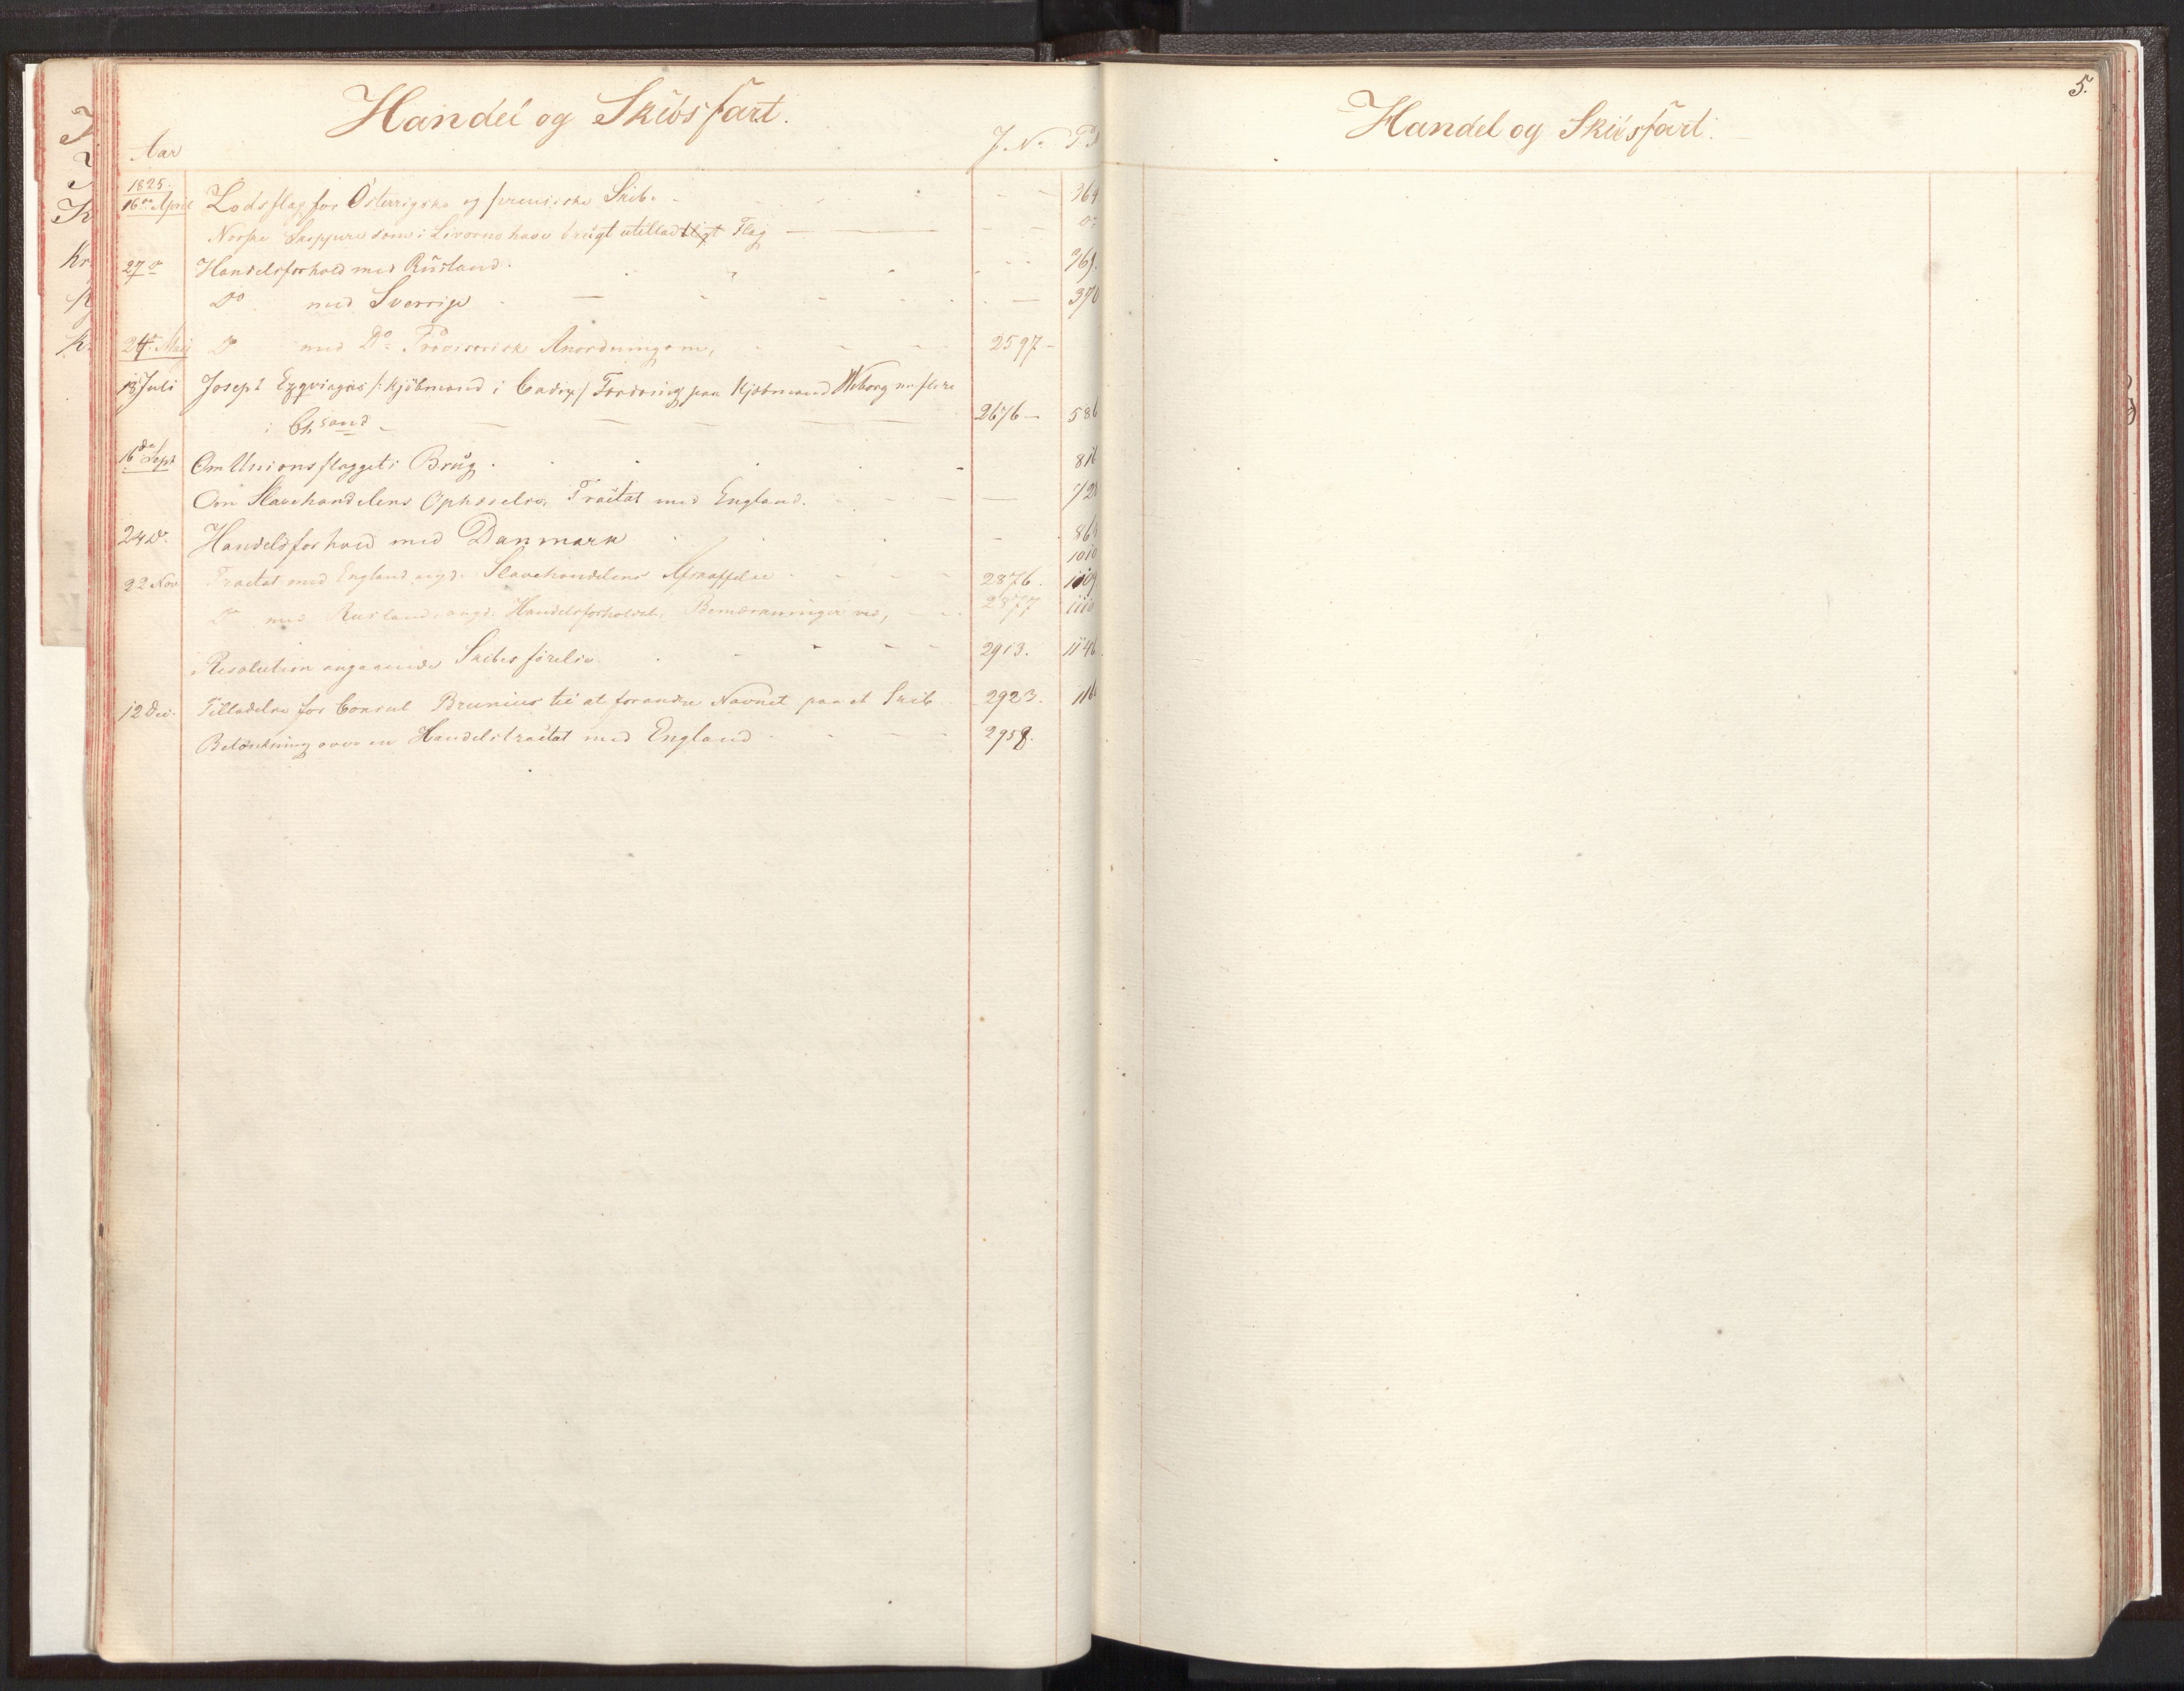 Handel og Skibsfart.
Aar J. No.
1825.
16de April Lodsflag for Østerrigske og preusiske Skibe 364
Norske Skippere som i Livorno have brugt utilladeligt Flag do
27 do Handelsforhold med Rusland. 369.
Do med Sverrige 370
24de Maij Do med Do Provisorisk Anordning om, 2597
13 Juli Joseph /: Kjöbmand i Cadix/ Fordring paa Kjöbmand Weborg m flere
i Chsand 2676 586
16de Sept Om Unionsflaggets Brug. 816
Om Slavehandelens Ophævelse, Tractat med England. 728
24 Do. Handelsforhold med Danmark 86
1010
22 Nov Tractat med England angd. Slavehandelens Afskaffelse 2876. 1109
Do med Rusland, angd. Handelsforholdet, Bemærkninger ved, 2877 1110
Resolution angaaende Skibes förelse. 2913. 1146.
12 Dec. Tilladelse for Consul Brunius til at forandre Navnet paa et Skib 2923. 116
Betænkning over en Handelstractat med England 2958.
5.
Handel og Skibsfart.